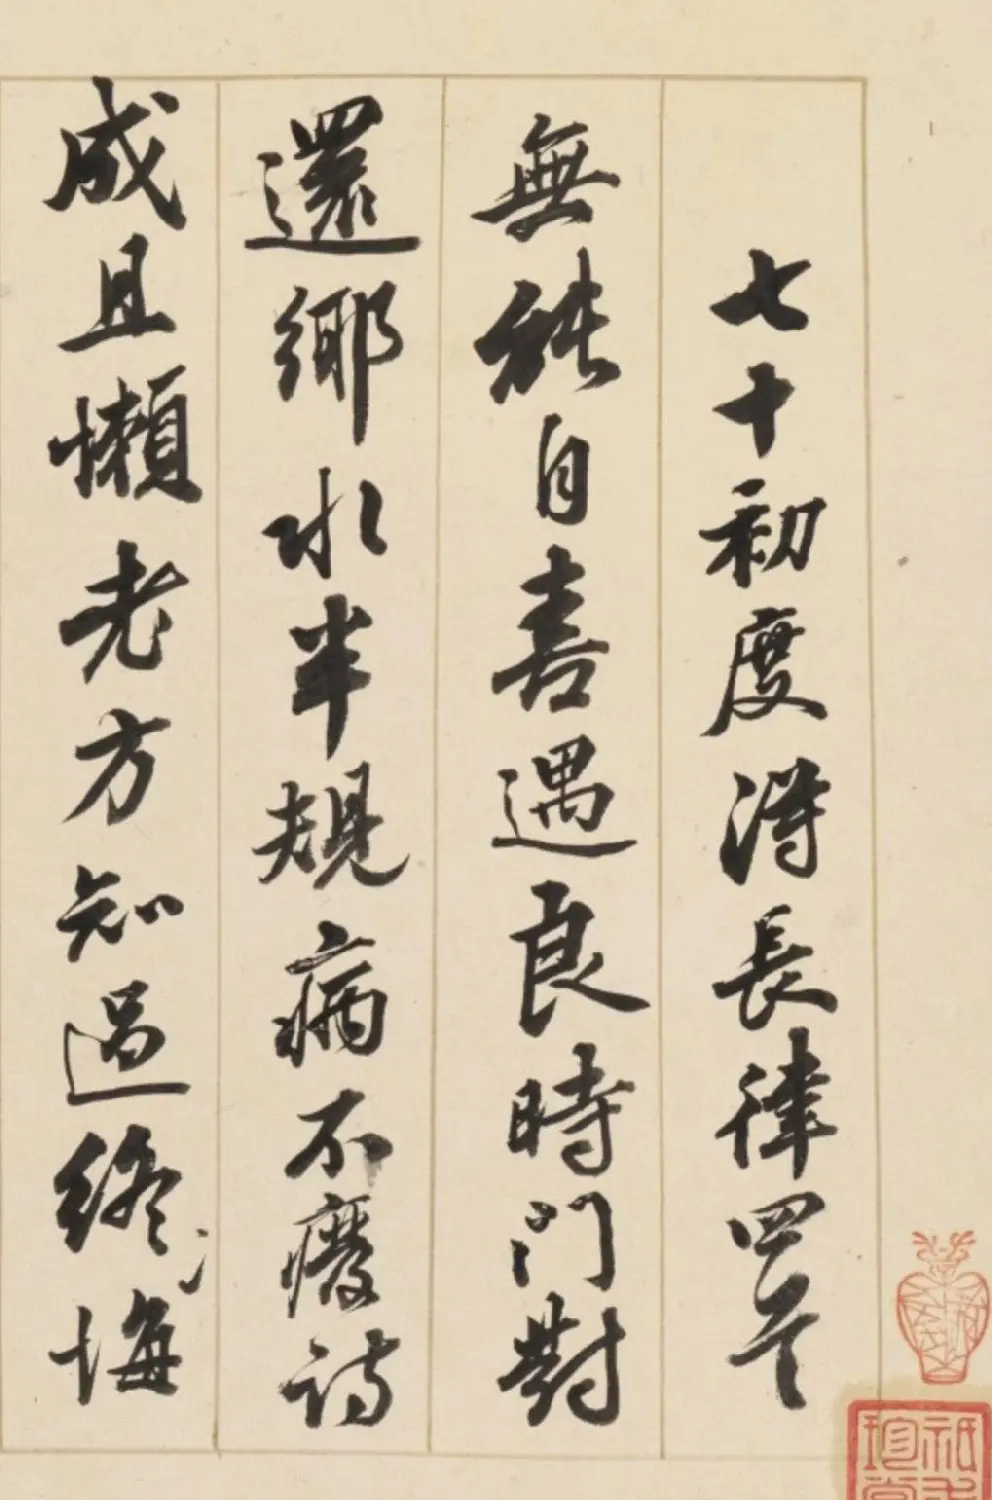 七十初度得長律四首
無能自喜遇良時門對
還鄉水半規病不廢詩
成且懶老方知過終悔